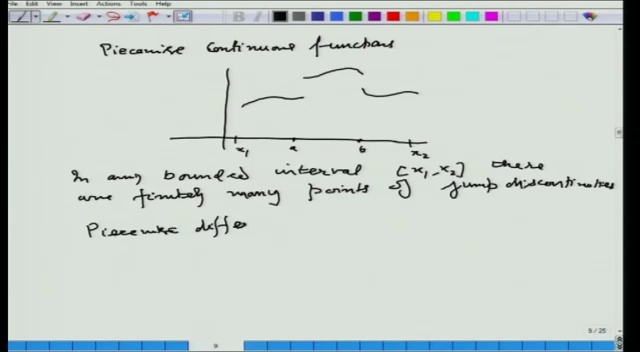 View Insert Actions Tools Help
Piecewise Continuous functions
x1 a b x2
In any bounded interval [x1, x2] there
are finitely many points of jump discontinuities
Piecewise diffe
9 / 25
9